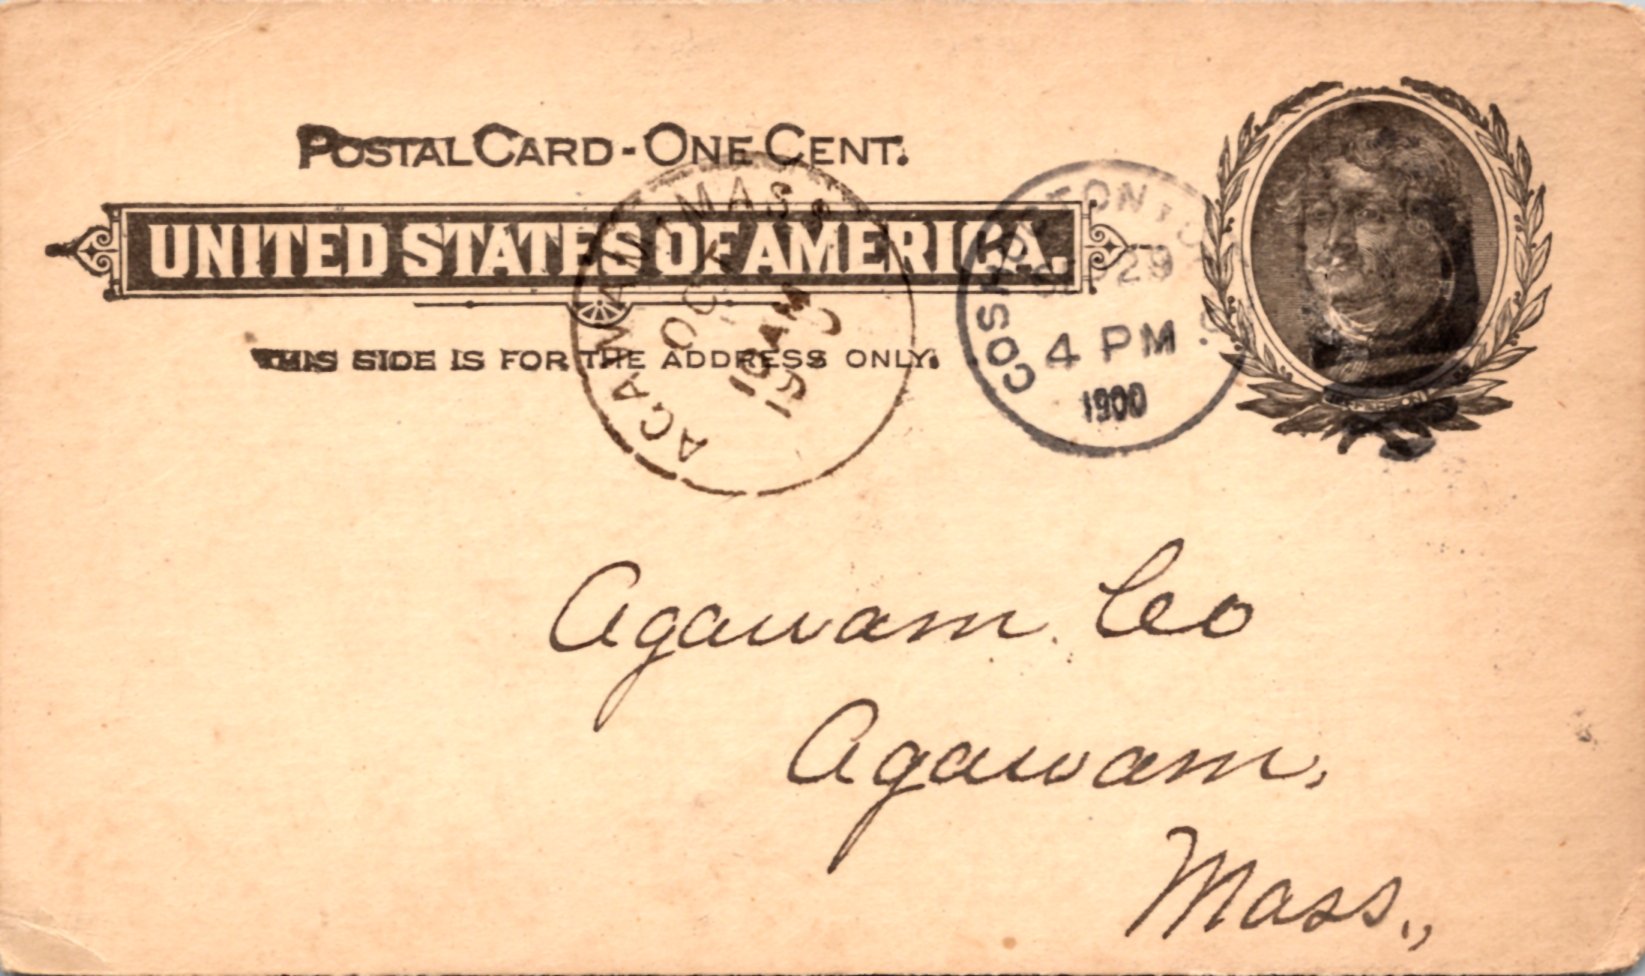 POSTAL CARD - ONE CENT.
UNITED STATES OF AMERICA.
THIS SIDE IS FOR THE ADDRESS ONLY.
AGAWAM MASS
OCT
10 AM
COSHOCTON
29
4 PM
1900
JEFFERSON
Agawam Co
Agawam,
Mass.,